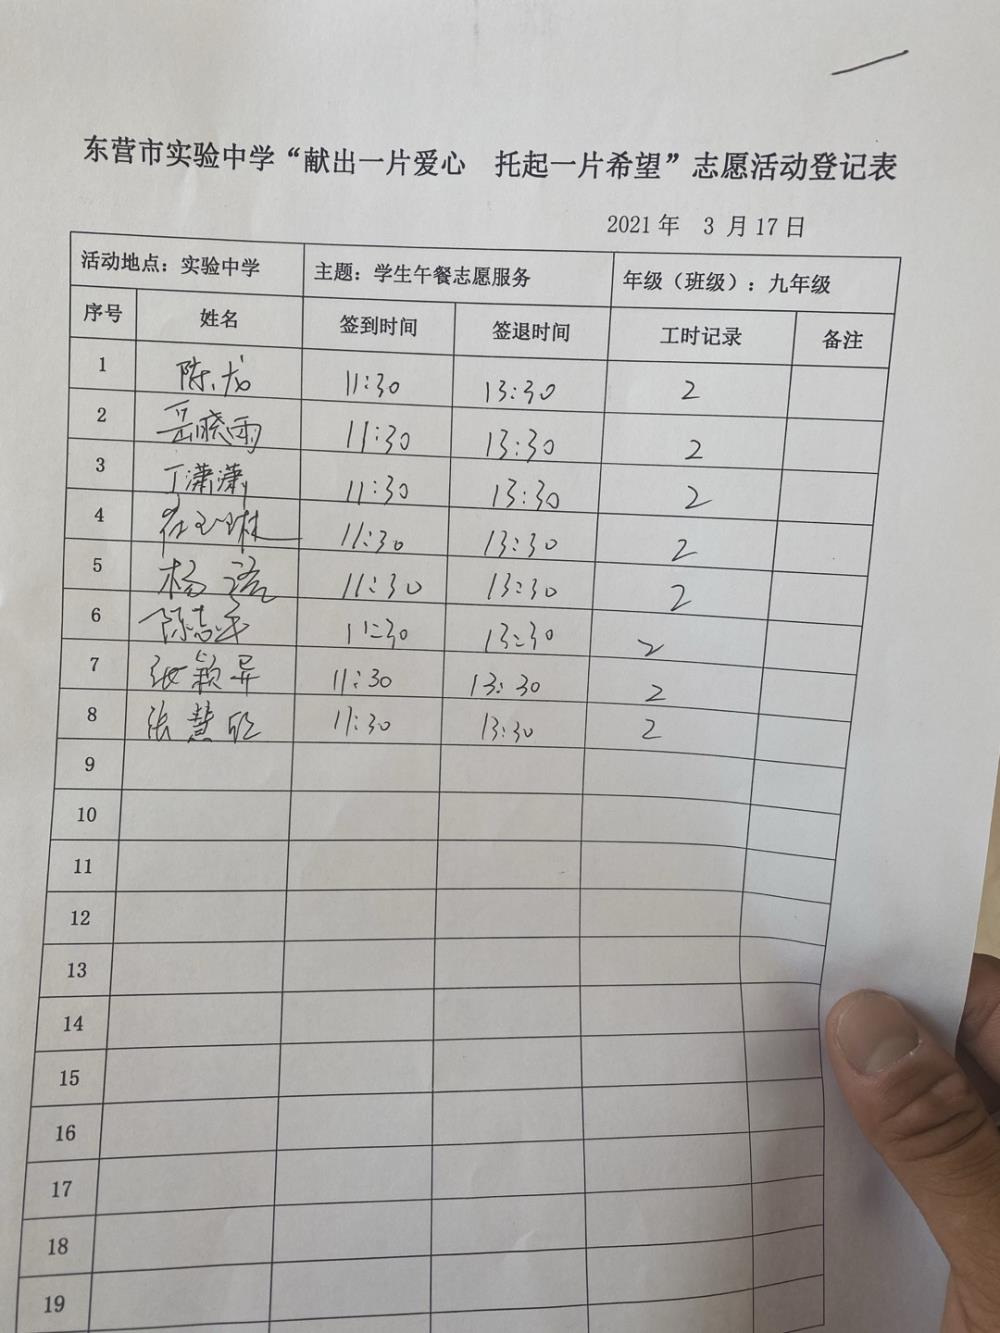 东营市实验中学“献出一片爱心 托起一片希望”志愿活动登记表
2021 年 3 月 17 日
活动地点：实验中学 主题：学生午餐志愿服务 年级（班级）：九年级
序号 姓名 签到时间 签退时间 工时记录 备注
1 陈龙 11:30 13:30 2
2 岳晓雨 11:30 13:30 2
3 丁潇潇 11:30 13:30 2
4 11:30 13:30 2
5 杨 11:30 13:30 2
6 陈志军 11:30 13:30 2
7 张颖异 11:30 13:30 2
8 张慧欣 11:30 13:30 2
9
10
11
12
13
14
15
16
17
18
19